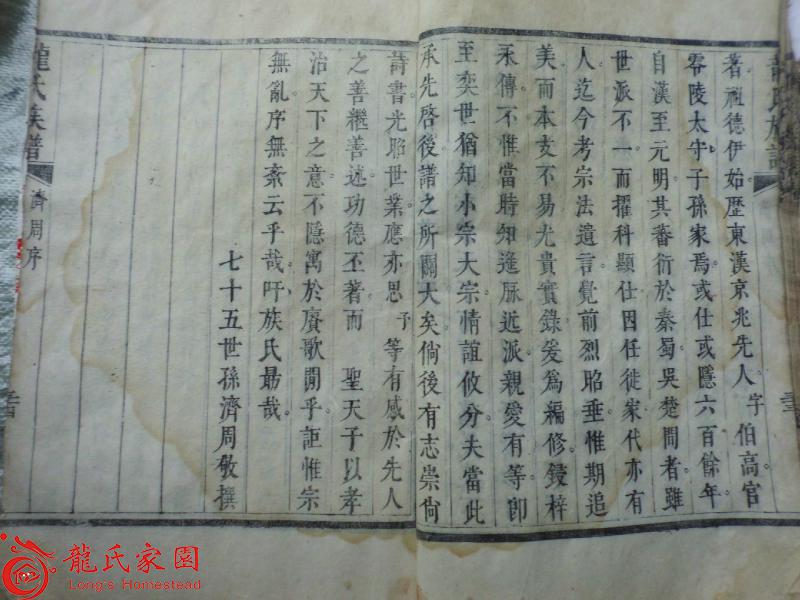 龍氏族譜
著祖德伊始歷東漢京兆先人字伯高官
零陵太守子孫家焉或仕或隱六百餘年
自漢至元明其蕃衍於秦蜀吳楚間者雖
世派不一而擢科顯仕因任徙家代亦有
人迄今考宗法遺言覺前烈昭垂惟期追
美而本支不易尤貴實錄爰為編修鋟梓
永傳不惟當時知遙脉近派親愛有等即
至奕世猶知小宗大宗情誼攸分夫當此
承先啓後譜之所關大矣倘後有志崇尚
詩書光昭世業應亦思予等有感於先人
之善繼善述功德丕著而 聖天子以孝
治天下之意不隱寓於賡歌間乎詎惟宗
無亂序無紊云乎哉吁族氏勗哉
七十五世孫濟周敬撰
龍氏族譜 濟周序
龍氏家園
Long's Homestead